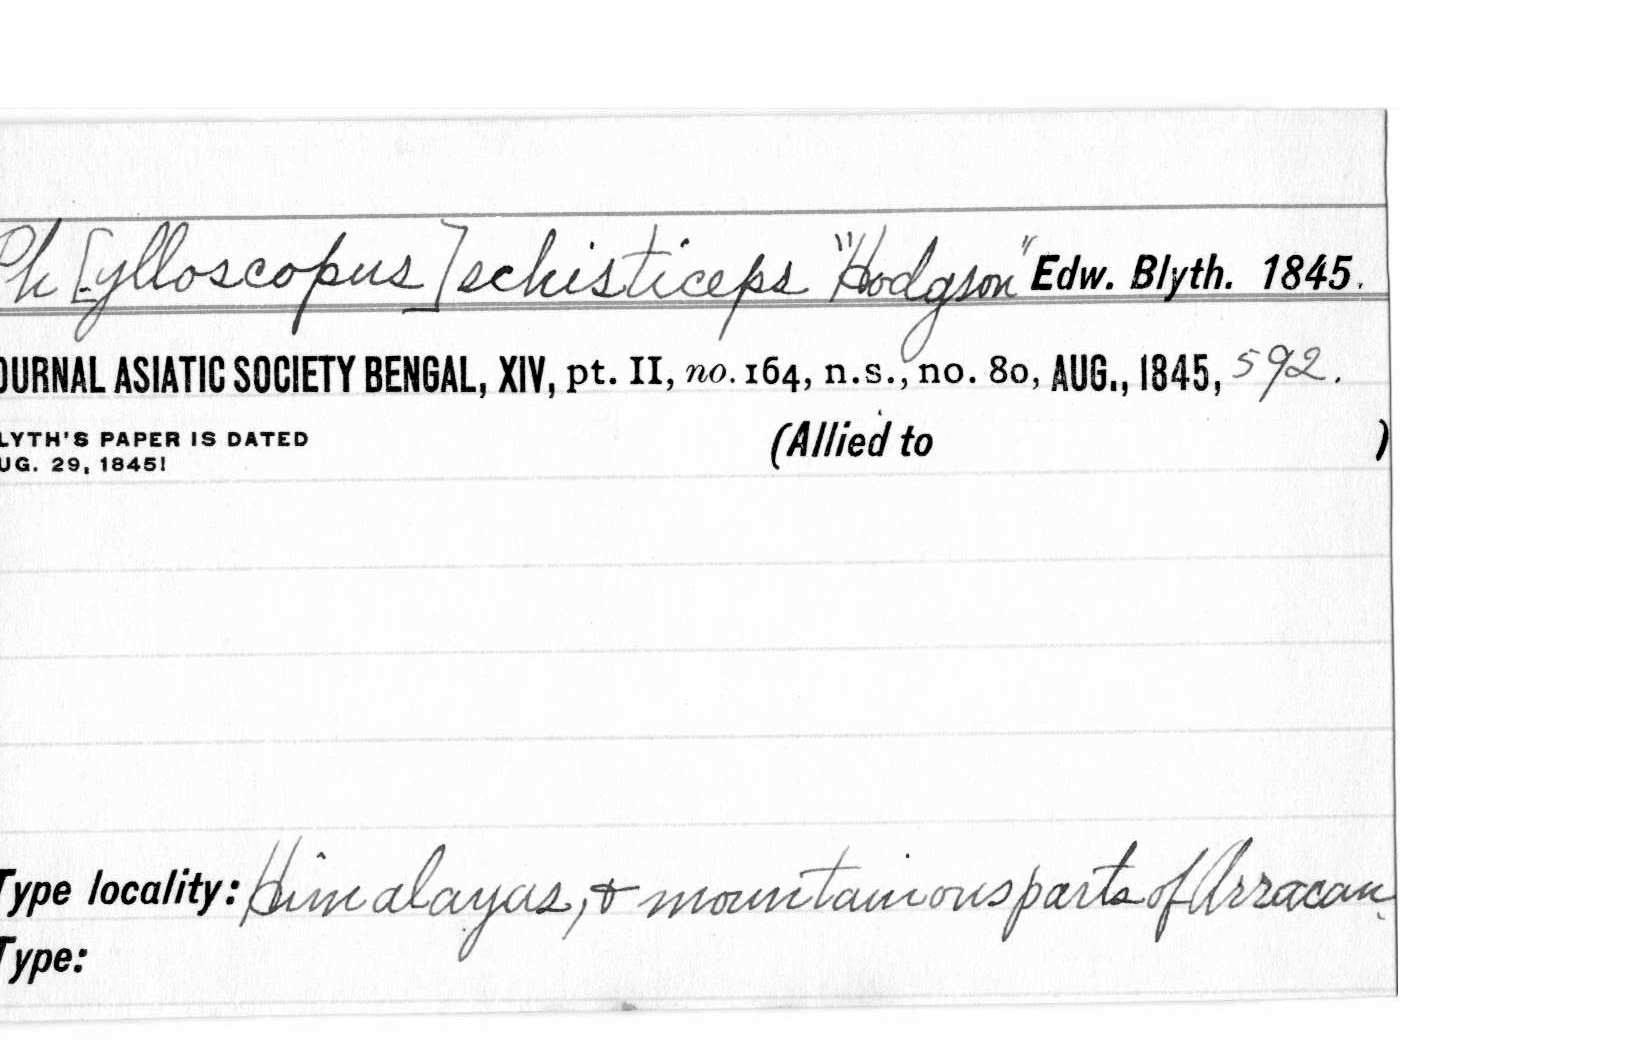 Ph[ylloscopus] schisticeps "Hodgson" Edw. Blyth. 1845.
OURNAL ASIATIC SOCIETY BENGAL, XIV, pt. II, no. 164, n.s., no. 80, AUG., 1845, 592.
LYTH'S PAPER IS DATED
UG. 29, 1845!
(Allied to )
Type locality: Himalayas, & mountainous parts of Arracan.
Type: